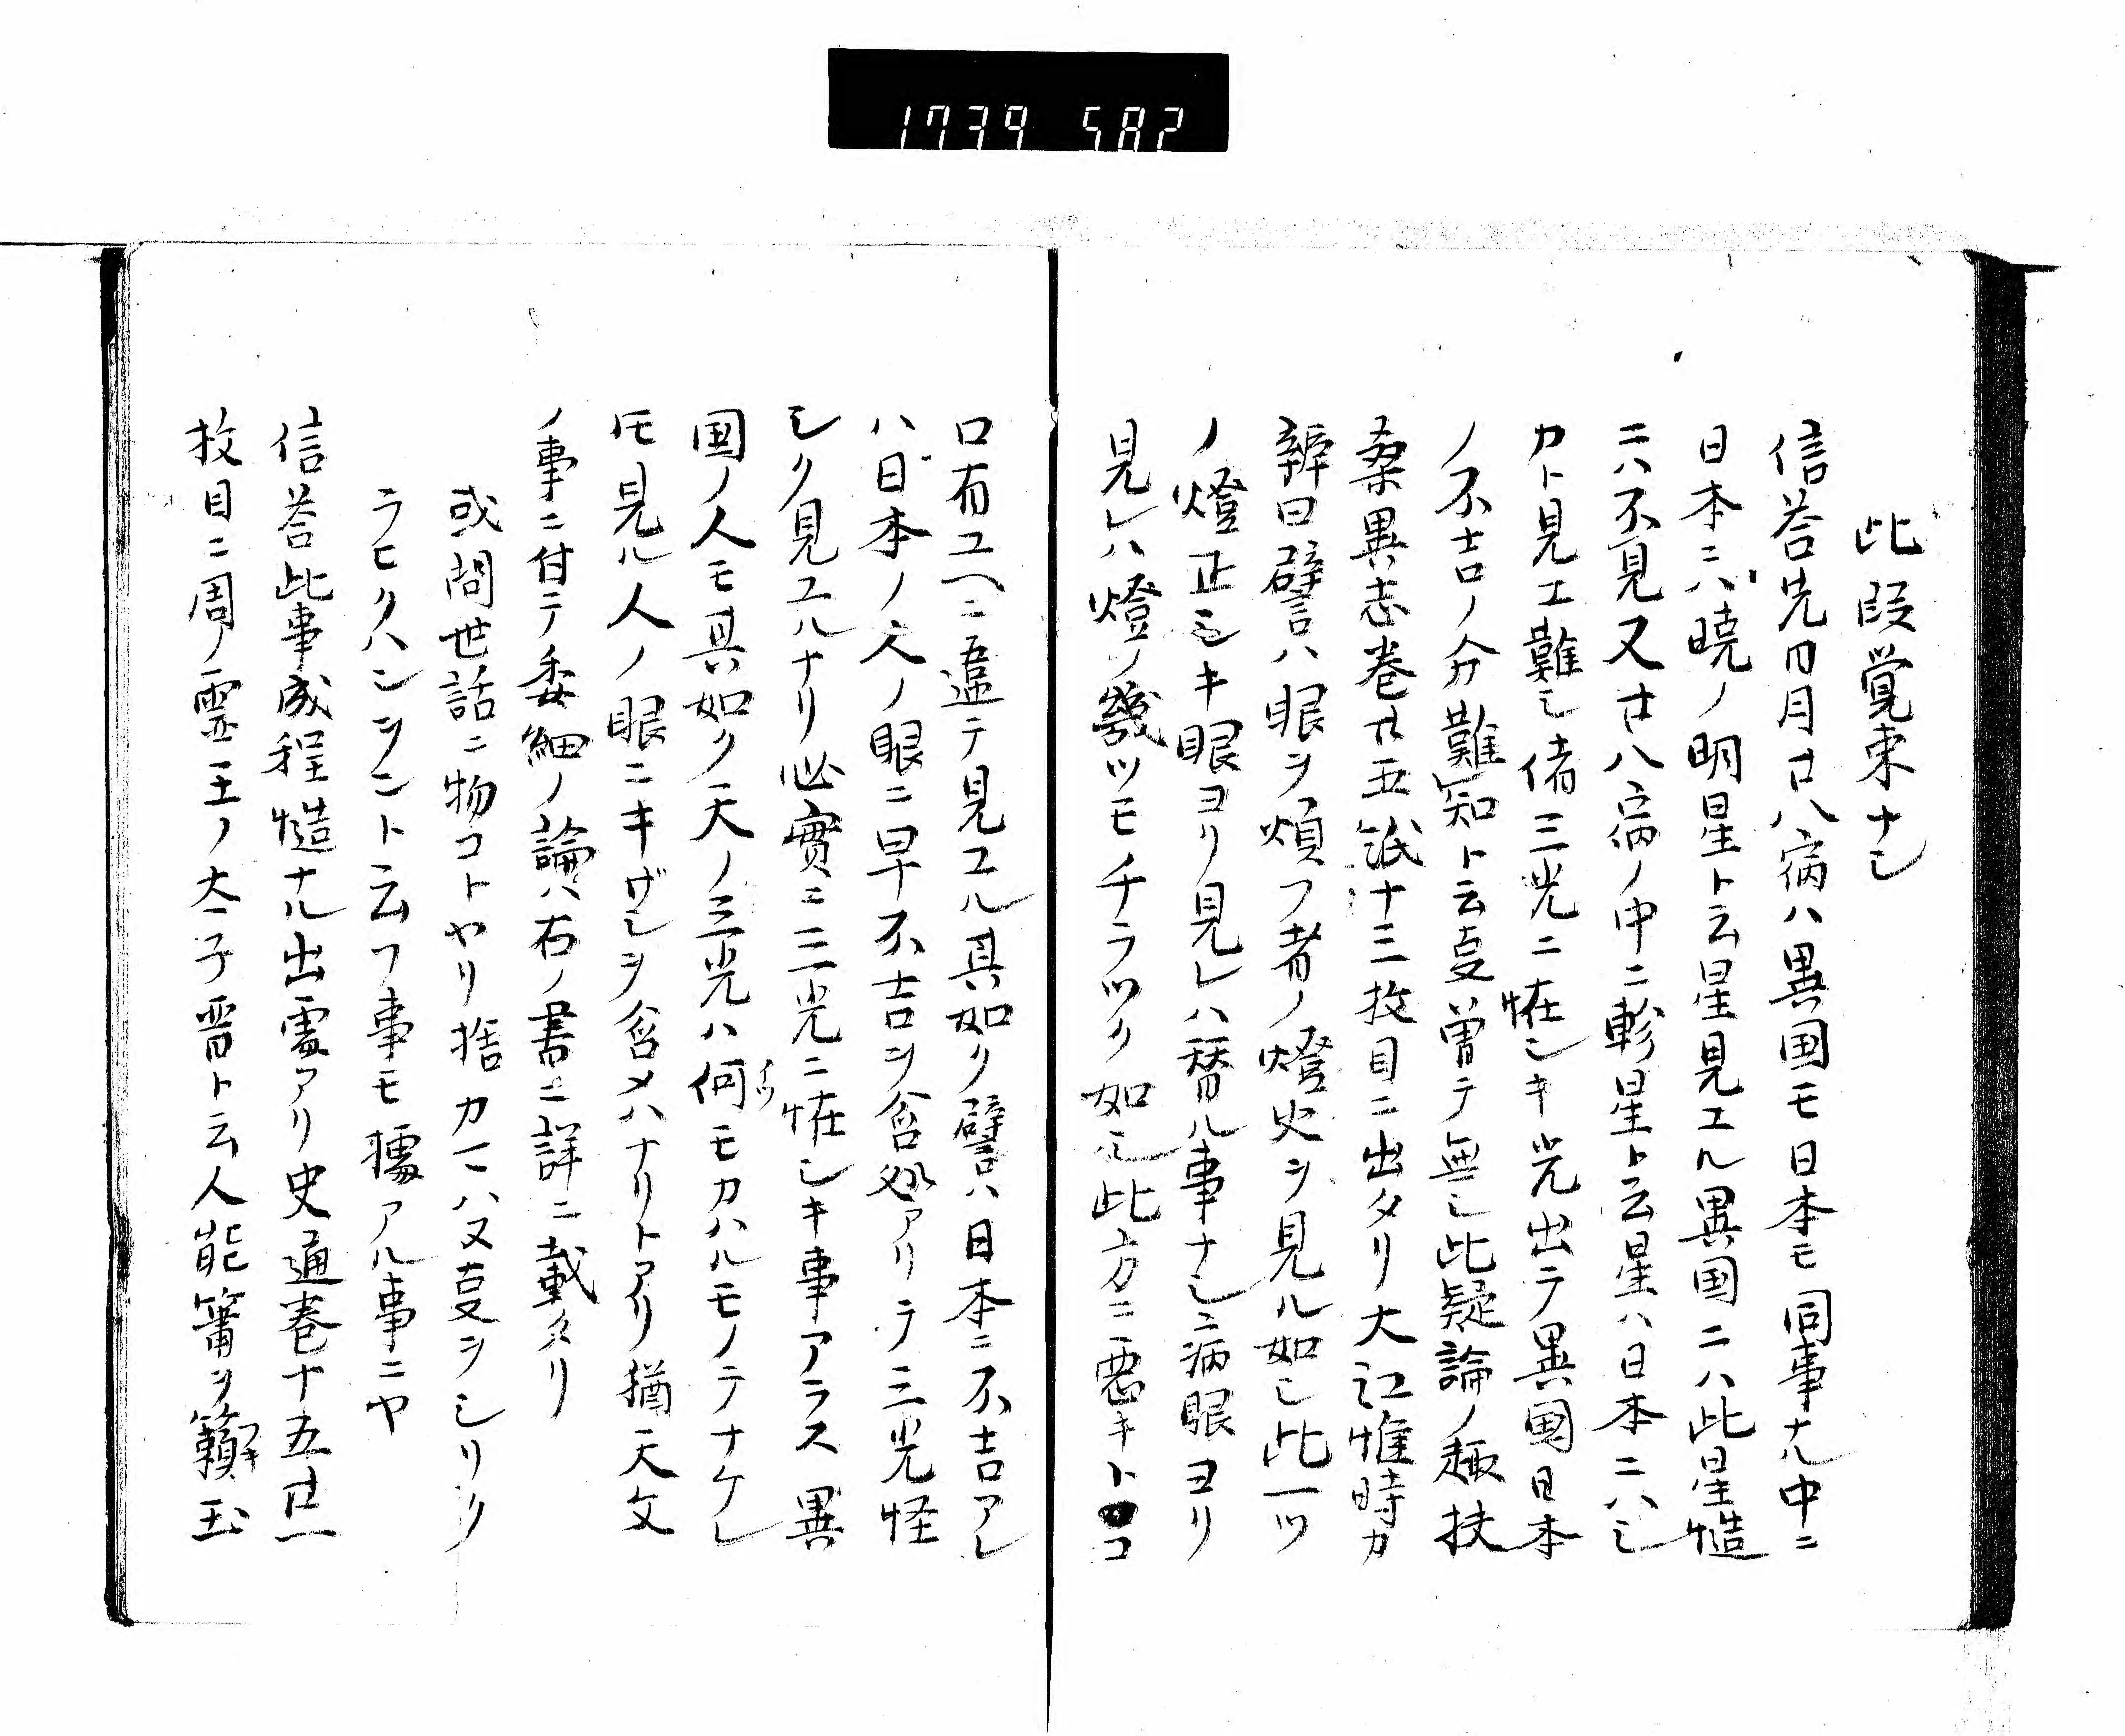 1739 582
此段覚束ナシ
信答先日月廿八宿ハ異国モ日本モ同事ナル中ニ
日本ニハ暁ノ明星ト云星見エル異国ニハ此星慥
ニハ不見又廿八宿ノ中ニ軫星ト云星ハ日本ニハシ
カト見エ難シ偖三光ニ恠シキ光出テ異国日本
ノ不吉ノ分難知ト云㕝曽テ無シ此疑論ノ趣扶
桑異志巻廿五紙十三枚目ニ出タリ大江惟時カ
辨曰譬ハ眼ヲ煩フ者ノ燈火ヲ見ル如シ此一ツ
ノ燈正シキ眼ヨリ見レハ替ル事ナシニ病眼ヨリ
見レハ燈ノ幾ツモチラツク如シ此方ニ悪キトコ
ロ有ユヘニ違テ見エル其如ク譬ハ日本ニ不吉アレ
ハ日本ノ人ノ眼ニ早不吉ヲ含処アリテ三光怪
シク見エルナリ必實ニ三光ニ恠シキ事アラス異
国ノ人モ其如ク天ノ三光ハ何モカハルモノテナケレ
𪜈見ル人ノ眼ニキザシヲ含メハナリトアリ猶天文
ノ事ニ付テ委細ノ論ハ右ノ書ニ詳ニ載タリ
或問世話ニ物コトヤリ捨カヽハ又㕝ヲシリク
ラヒクハンヲント云フ事モ據アル事ニヤ
信答此事成程慥ナル出處アリ史通巻十五廿一
枚目ニ周ノ霊王ノ太子晋ト云人能簫ヲ籟玉